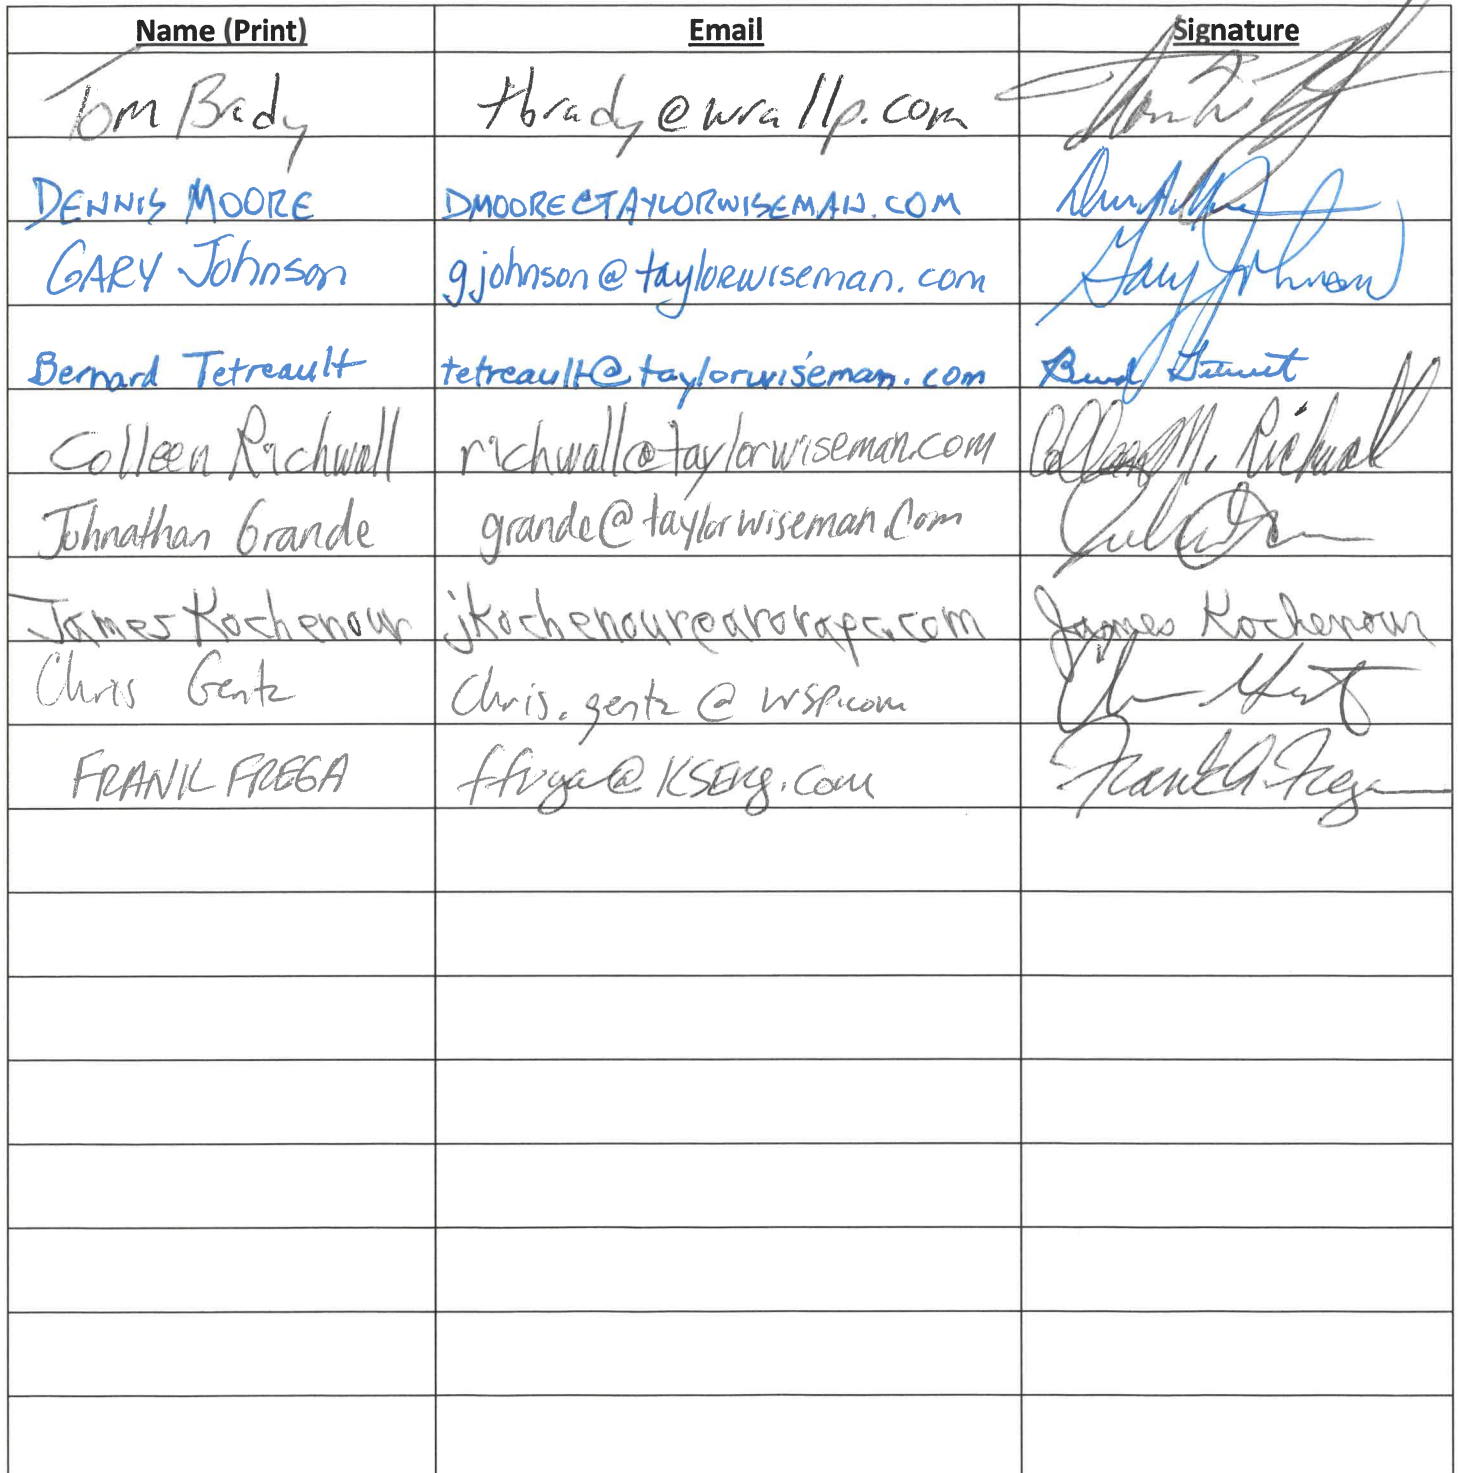 Name (Print) Email Signature
Tom Brady tbrady@wrallp.com
DENNIS MOORE DMOORE@TAYLORWISEMAN.COM
GARY Johnson gjohnson@taylorwiseman.com Gary Johnson
Bernard Tetreault tetreault@taylorwiseman.com
Colleen Richwall richwall@taylorwiseman.com Colleen M. Richwall
Johnathan Grande grande@taylorwiseman.com
James Kochenour jkochenour@arorapc.com James Kochenour
Chris Gentz Chris.gentz@wsp.com
FRANK FREGA ffrega@KSEng.com Frank A. Frega